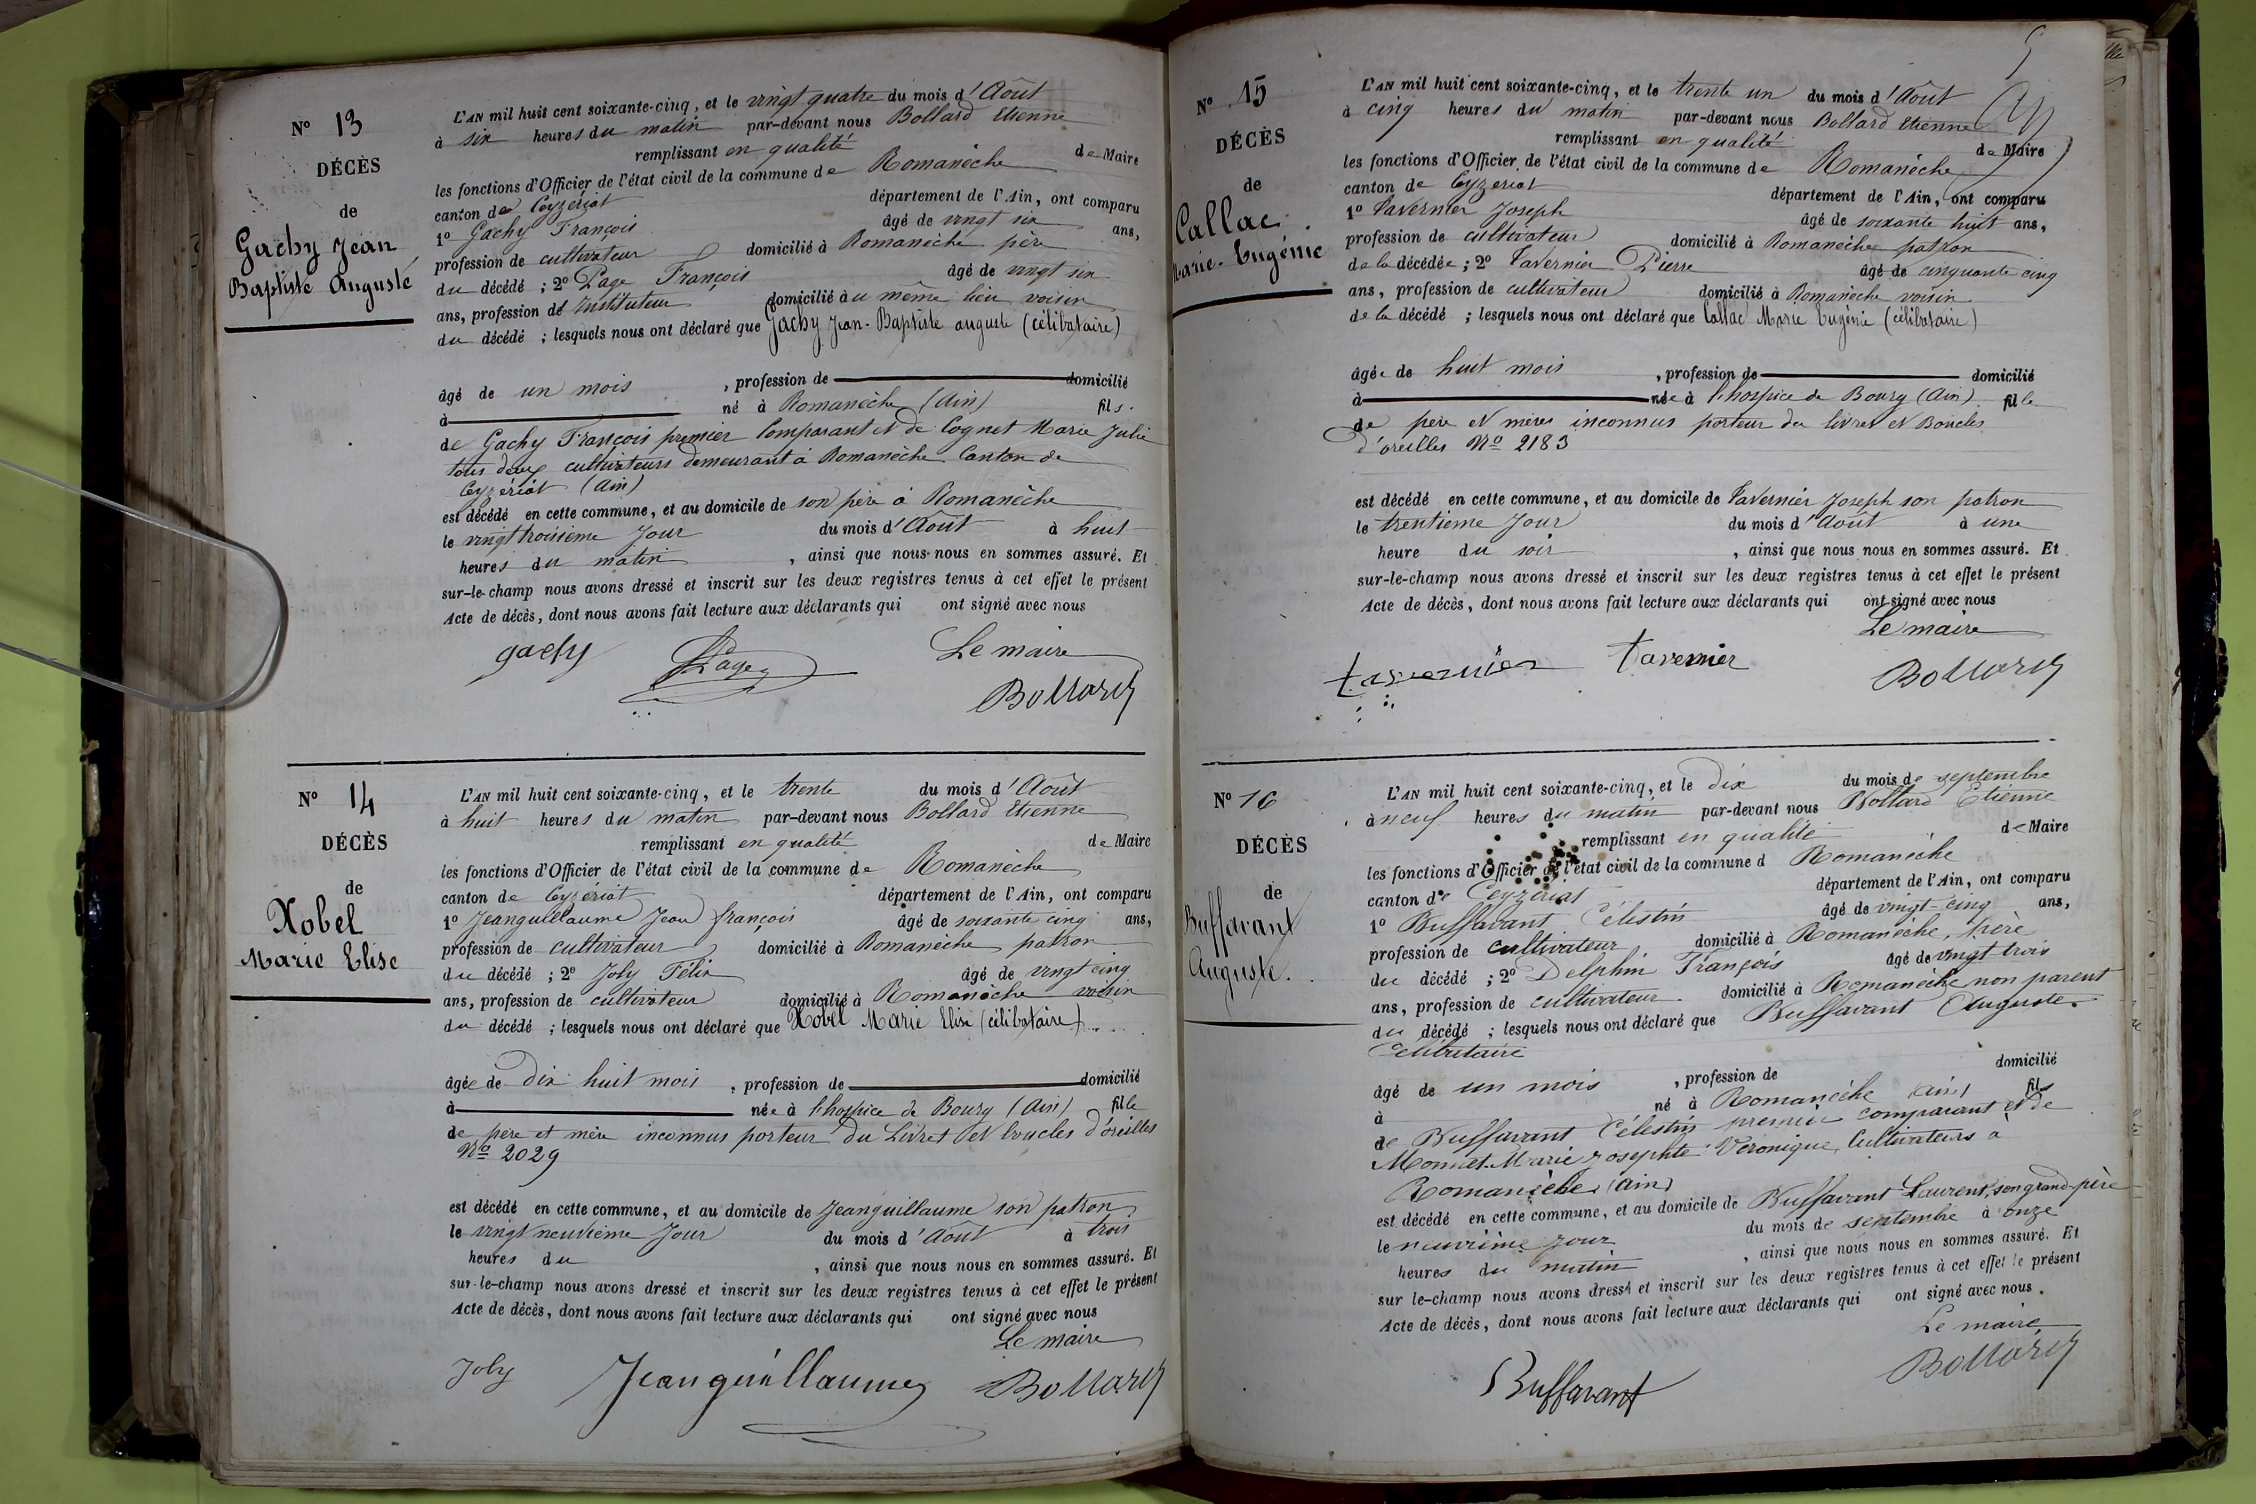 N° 13
DÉCÈS
de
Gachy Jean
Baptiste Auguste
L'AN mil huit cent soixante-cinq, et le vingt quatre du mois d'Août
à six heures du matin par-devant nous Bollard Etienne
remplissant en qualité de Maire
les fonctions d'Officier de l'état civil de la commune de Romanèche
canton de Ceyzériat département de l'Ain, ont comparu
1° Gachy François âgé de vingt six ans,
profession de cultivateur domicilié à Romanèche père
du décédé ; 2° Page François âgé de vingt six
ans, profession de Instituteur domicilié au même lieu voisin
du décédé ; lesquels nous ont déclaré que Gachy Jean-Baptiste auguste (célibataire)
âgé de un mois , profession de domicilié
à né à Romanèche (Ain) fils
de Gachy François premier Comparant et de Cognet Marie Julie
tous deux cultivateurs demeurant à Romanèche Canton de
Ceyzériat (Ain)
est décédé en cette commune, et au domicile de son père à Romanèche
le vingt troisième Jour du mois d'Août à huit
heures du matin , ainsi que nous nous en sommes assuré. Et
sur-le-champ nous avons dressé et inscrit sur les deux registres tenus à cet effet le présent
Acte de décès, dont nous avons fait lecture aux déclarants qui ont signé avec nous
gachy Page Le maire
Bollard
N° 14
DÉCÈS
de
Xobel
Marie Elise
L'AN mil huit cent soixante-cinq, et le trente du mois d'Août
à huit heures du matin par-devant nous Bollard Etienne
remplissant en qualité de Maire
les fonctions d'Officier de l'état civil de la commune de Romanèche
canton de Ceyzériat département de l'Ain, ont comparu
1° Jeanguillaume Jean françois âgé de soixante cinq ans,
profession de cultivateur domicilié à Romanèche patron
du décédé ; 2° Joly Félix âgé de vingt cinq
ans, profession de cultivateur domicilié à Romanèche voisin
du décédé ; lesquels nous ont déclaré que Xobel Marie Elise (célibataire)
âgée de dix huit mois , profession de domicilié
à née à l'hospice de Bourg (Ain) fille
de père et mère inconnus porteur du Livret et boucles d'oreilles
N° 2029
est décédé en cette commune, et au domicile de Jeanguillaume son patron
le vingt neuvième Jour du mois d'Août à trois
heures du , ainsi que nous nous en sommes assuré. Et
sur-le-champ nous avons dressé et inscrit sur les deux registres tenus à cet effet le présent
Acte de décès, dont nous avons fait lecture aux déclarants qui ont signé avec nous
Le maire
Joly Jeanguillaume Bollard
N° 15
DÉCÈS
de
Callac
Marie-Eugénie
L'AN mil huit cent soixante-cinq, et le trente un du mois d'Août
à cinq heures du matin par-devant nous Bollard Etienne
remplissant en qualité de Maire
les fonctions d'Officier de l'état civil de la commune de Romanèche
canton de Ceyzeriat département de l'Ain, ont comparu
1° Tavernier Joseph âgé de soixante huit ans,
profession de cultivateur domicilié à Romanèche patron
de la décédée ; 2° Tavernier Pierre âgé de cinquante cinq
ans, profession de cultivateur domicilié à Romanèche voisin
de la décédé ; lesquels nous ont déclaré que Callac Marie Eugénie (célibataire)
âgée de huit mois , profession de domicilié
à née à l'hospice de Bourg (Ain) fille
de père et mère inconnus porteur du livret et Boucles
d'oreilles N° 2183
est décédé en cette commune, et au domicile de Tavernier Joseph son patron
le trentieme Jour du mois d'Août à une
heure du soir , ainsi que nous nous en sommes assuré. Et
sur-le-champ nous avons dressé et inscrit sur les deux registres tenus à cet effet le présent
Acte de décès, dont nous avons fait lecture aux déclarants qui ont signé avec nous
Le maire
tavernier tavernier Bollard
N° 16
DÉCÈS
de
Buffavant
Auguste.
L'AN mil huit cent soixante-cinq, et le dix du mois de septembre
à neuf heures du matin par-devant nous Bollard Etienne
remplissant en qualité de Maire
les fonctions d'Officier de l'état civil de la commune d Romanèche
canton de Ceyzériat département de l'Ain, ont comparu
1° Buffavant Célestin âgé de vingt-cinq ans,
profession de cultivateur domicilié à Romanèche, père
du décédé ; 2° Delphin François âgé de vingt trois
ans, profession de cultivateur domicilié à Romanèche non parent
du décédé ; lesquels nous ont déclaré que Buffavant Auguste
Célibataire
âgé de un mois , profession de domicilié
à né à Romanèche (ain) fils
de Buffavant Célestin premier comparant et de
Monnet Marie Josephte Véronique, Cultivateurs à
Romanèche (ain)
est décédé en cette commune, et au domicile de Buffavant Laurent, son grand-père
le neuvième jour du mois de septembre à onze
heures du matin , ainsi que nous nous en sommes assuré. Et
sur le-champ nous avons dressé et inscrit sur les deux registres tenus à cet effet le présent
Acte de décès, dont nous avons fait lecture aux déclarants qui ont signé avec nous.
Le maire
Buffavant Bollard